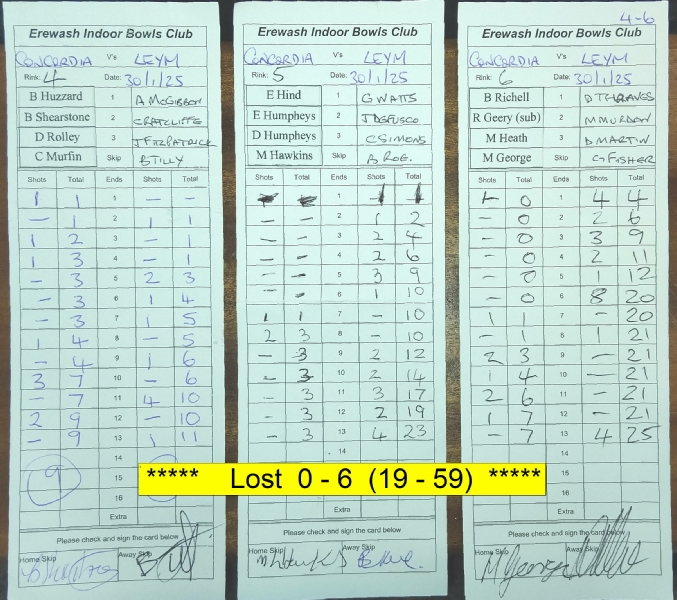 4-6
Erewash Indoor Bowls Club
CONCORDIA V's LEYM
Rink: 4 Date: 30/1/25
B Huzzard 1 A McGIBBON
B Shearstone 2 C RATCLIFFE
D Rolley 3 J FITZPATRICK
C Murfin Skip B TILLY
Shots Total Ends Shots Total
1 1 1 - -
- 1 2 1 1
1 2 3 - 1
1 3 4 - 1
- 3 5 2 3
- 3 6 1 4
- 3 7 1 5
1 4 8 - 5
- 4 9 1 6
3 7 10 - 6
- 7 11 4 10
2 9 12 - 10
- 9 13 1 11
14
9 15
16
Extra
Please check and sign the card below
Home Skip Away Skip
Erewash Indoor Bowls Club
CONCORDIA V's LEYM
Rink: 5 Date: 30/1/25
E Hind 1 G WATTS
E Humpheys 2
D Humpheys 3 C SIMONS
M Hawkins Skip A ROE.
Shots Total Ends Shots Total
1 1 1
- - 2 1 2
- - 3 2 4
- - 4 2 6
- - 5 3 9
- - 6 1 10
1 1 7 - 10
2 3 8 - 10
- 3 9 2 12
- 3 10 2 14
- 3 11 3 17
- 3 12 2 19
- 3 13 4 23
14
Extra
Please check and sign the card below
Home Skip Away Skip
Erewash Indoor Bowls Club
CONCORDIA V's LEYM
Rink: 6 Date: 30/1/25
B Richell 1 D THRAVES
R Geery (sub) 2 M MURDEN
M Heath 3 D MARTIN
M George Skip G FISHER
Shots Total Ends Shots Total
- 0 1 4 4
- 0 2 2 6
- 0 3 3 9
- 0 4 2 11
- 0 5 1 12
- 0 6 8 20
1 1 7 - 20
- 1 8 1 21
2 3 9 - 21
1 4 10 - 21
2 6 11 - 21
1 7 12 - 21
- 7 13 4 25
14
15
16
Extra
Please check and sign the card below
Home Skip Away Skip
M George
***** Lost 0 - 6 (19 - 59) *****